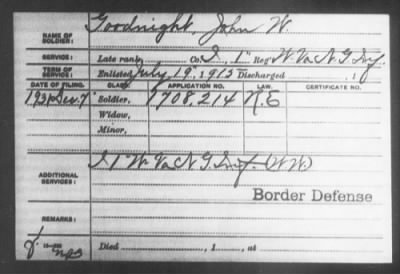 NAME OF SOLDIER: Goodnight, John W.
SERVICE: Late rank, Co. I, 1" Reg't W Va N G Inf.
TERM OF SERVICE: Enlisted July 19, 1915 Discharged , 1
DATE OF FILING. CLASS. APPLICATION NO. LAW. CERTIFICATE NO.
1931 Dec. 7 Soldier, 1708,214 N.E
Widow,
Minor,
ADDITIONAL SERVICES: I 1" W Va N G Inf. (WW)
Border Defense
REMARKS:
Died , 1 , at